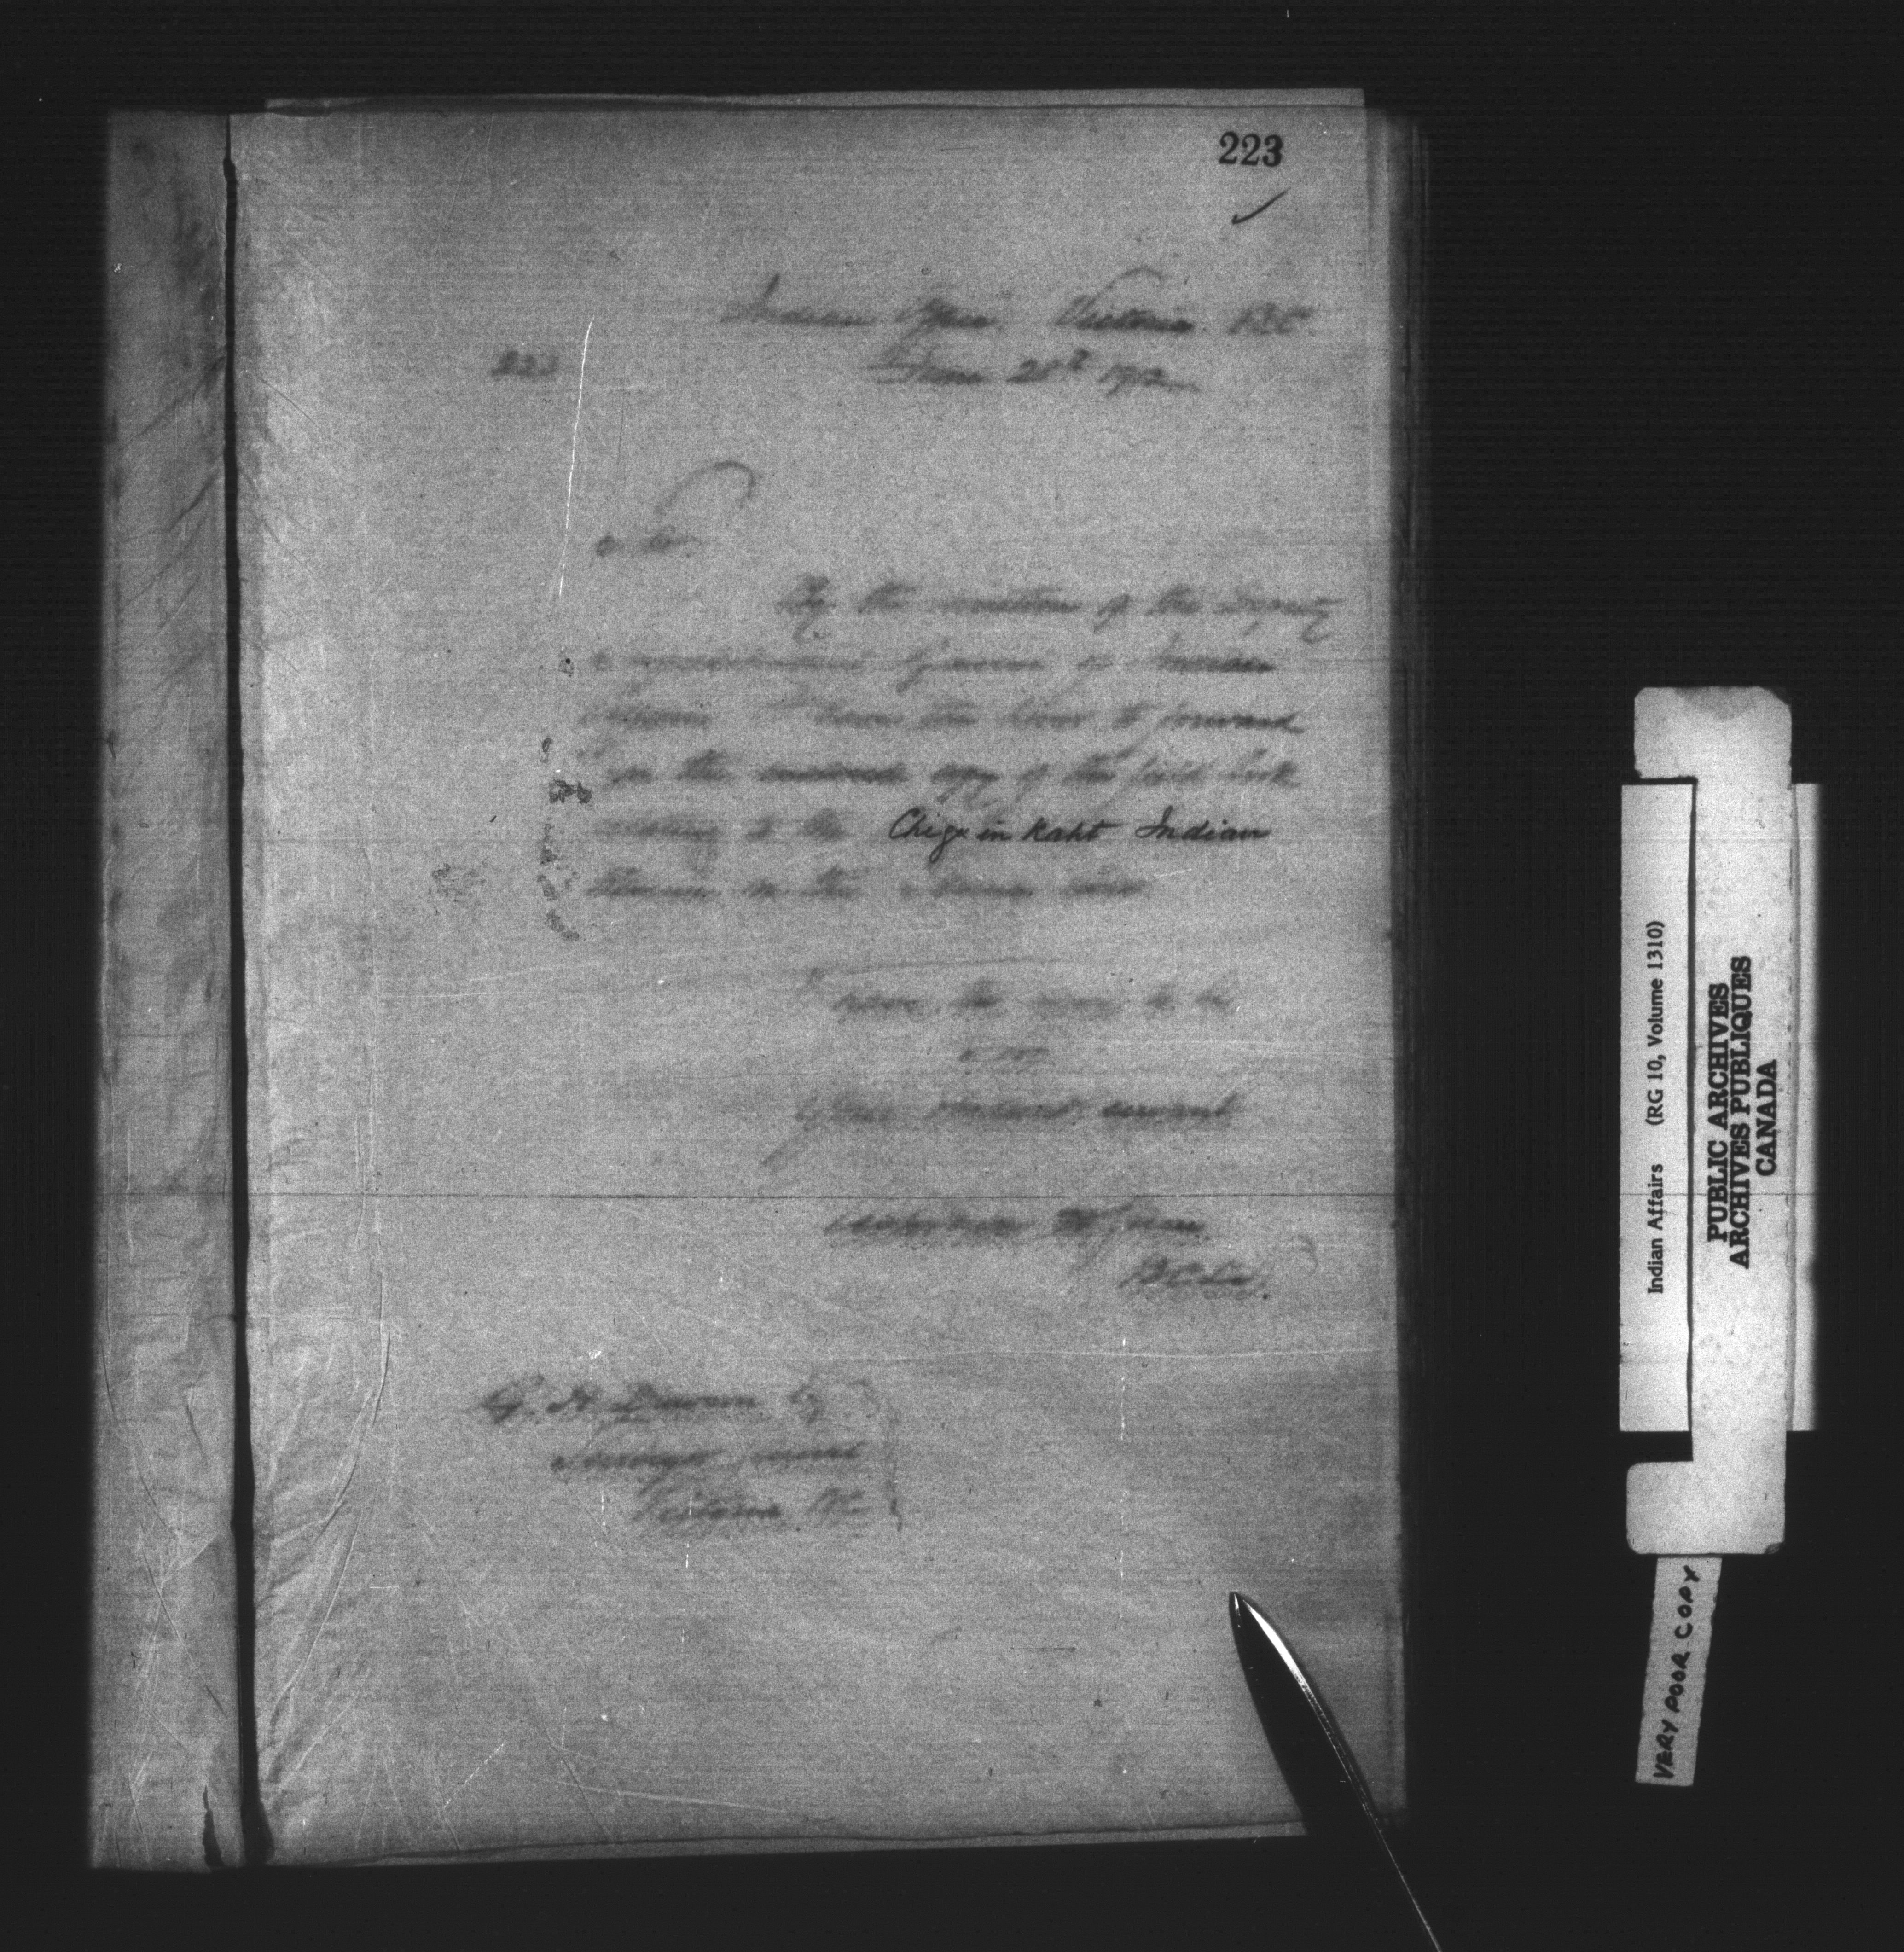 223
Indian Office. Victoria. BC
223
June 28th 1912
Sir
By the direction of the Deputy
Superintendent General of Indian
Affairs I have the honor to forward
you the enclosed copy of the field book
relating to the Chigu in kaht Indian
Reserve in the
I have the honor to be
Sir
Your obedient servant
BCLS.
G. H. Dawson Esq
Surveyor General
Victoria BC
Indian Affairs (RG 10, Volume 1310)
PUBLIC ARCHIVES
ARCHIVES PUBLIQUES
CANADA
VERY POOR COPY